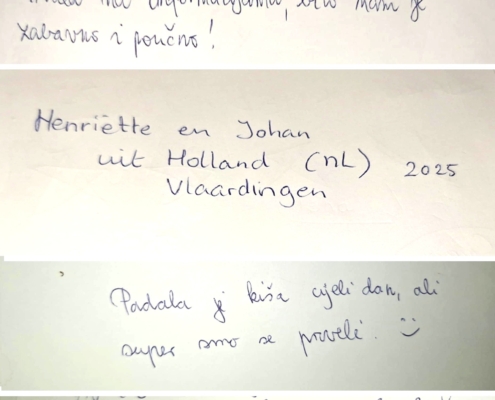 informacijama, bilo nam je
zabavno i poučno!
Henriëtte en Johan
uit Holland (NL) 2025
Vlaardingen
Padala je kiša cijeli dan, ali
super smo se proveli. :)